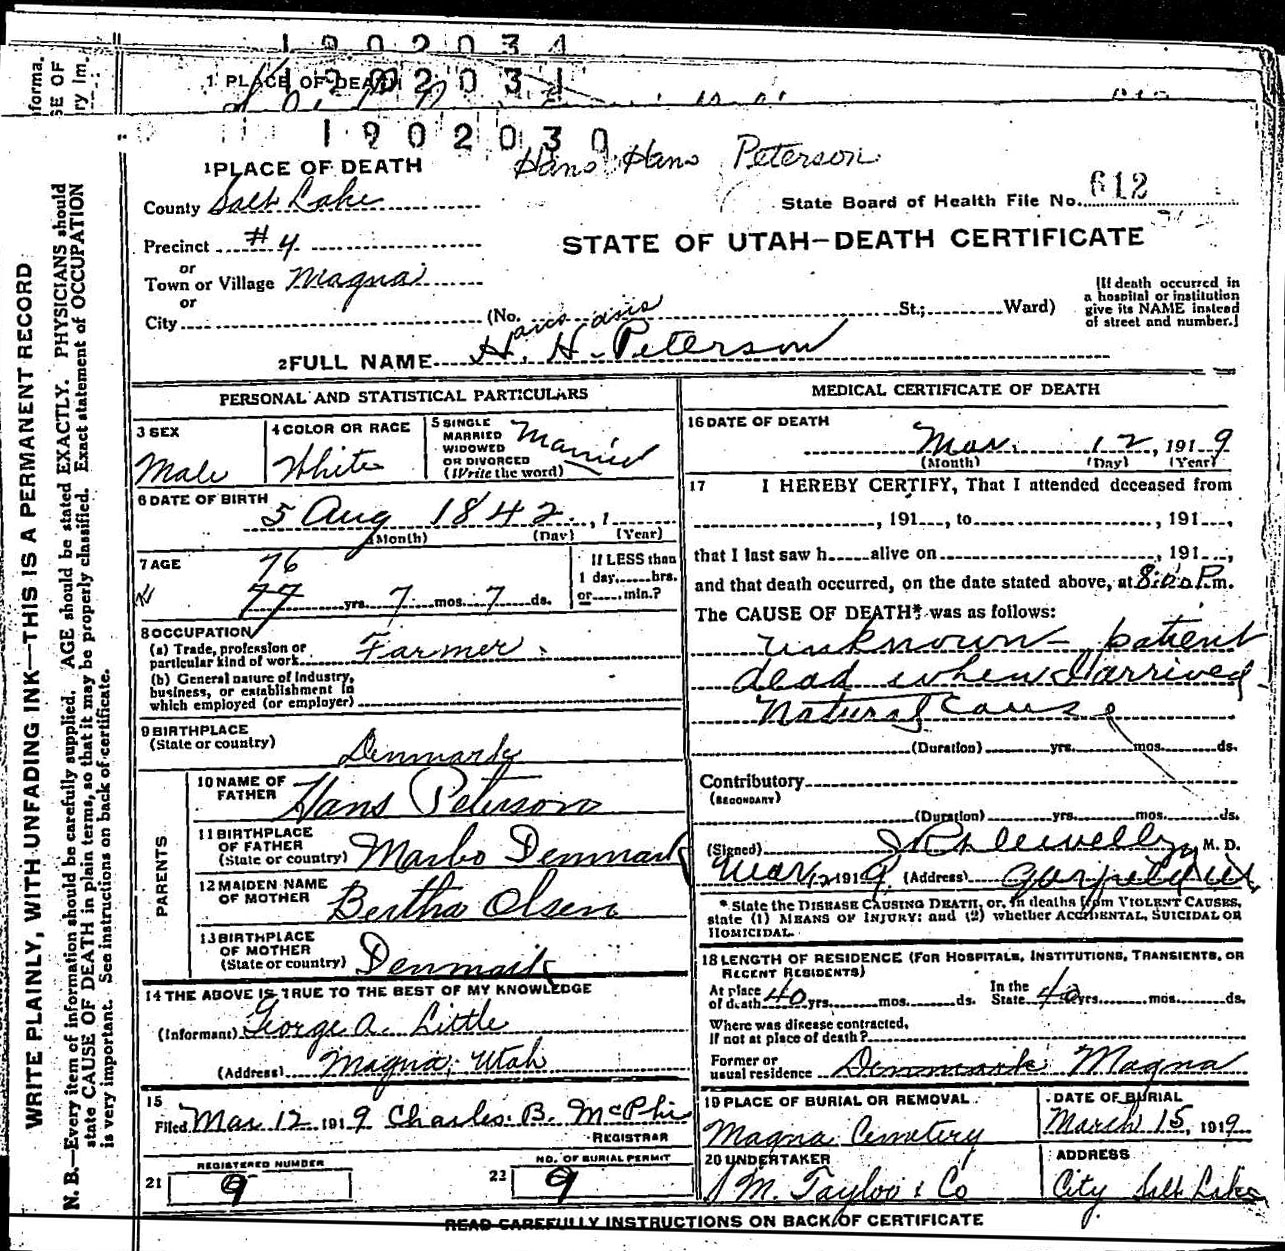 1902034
1 PLACE OF DEATH
1902031
1902030
Hans Hans Peterson
1 PLACE OF DEATH
County Salt Lake
State Board of Health File No. 612
Precinct #4
STATE OF UTAH—DEATH CERTIFICATE
or
Town or Village Magna
or
City (No. St.; Ward)
[If death occurred in
a hospital or institution
give its NAME instead
of street and number.]
ans ans
2 FULL NAME H. H. Peterson
PERSONAL AND STATISTICAL PARTICULARS
3 SEX
Male
4 COLOR OR RACE
White
5 SINGLE
MARRIED
WIDOWED
OR DIVORCED
(Write the word)
Married
6 DATE OF BIRTH
5 Aug 1842, 1
(Month) (Day) (Year)
7 AGE
76
77 yrs. 7 mos. 7 ds.
If LESS than
1 day, hrs.
or min.?
8 OCCUPATION
(a) Trade, profession or
particular kind of work Farmer
(b) General nature of industry,
business, or establishment in
which employed (or employer)
9 BIRTHPLACE
(State or country)
Denmark
PARENTS
10 NAME OF
FATHER Hans Peterson
11 BIRTHPLACE
OF FATHER
(State or country) Maribo Denmark
12 MAIDEN NAME
OF MOTHER Bertha Olsen
13 BIRTHPLACE
OF MOTHER
(State or country) Denmark
14 THE ABOVE IS TRUE TO THE BEST OF MY KNOWLEDGE
(Informant) George A. Little
(Address) Magna, Utah
15
Filed Mar 12 1919 Charles B. McPhie
REGISTRAR
REGISTERED NUMBER
21 9
NO. OF BURIAL PERMIT
22 9
MEDICAL CERTIFICATE OF DEATH
16 DATE OF DEATH
Mar. 12, 1919
(Month) (Day) (Year)
17 I HEREBY CERTIFY, That I attended deceased from
, 191 , to , 191 ,
that I last saw h alive on , 191 ,
and that death occurred, on the date stated above, at 8:00 P.m.
The CAUSE OF DEATH* was as follows:
unknown - patient
dead when I arrived
Natural Cause
(Duration) yrs. mos. ds.
Contributory
(SECONDARY)
(Duration) yrs. mos. ds.
(Signed) Llewellyn, M. D.
Mar 12 1919 (Address) Garfield Ut
* State the DISEASE CAUSING DEATH, or, in deaths from VIOLENT CAUSES,
state (1) MEANS OF INJURY; and (2) whether ACCIDENTAL, SUICIDAL OR
HOMICIDAL.
18 LENGTH OF RESIDENCE (FOR HOSPITALS, INSTITUTIONS, TRANSIENTS, OR
RECENT RESIDENTS)
At place
of death 40 yrs. mos. ds.
In the
State 40 yrs. mos. ds.
Where was disease contracted,
If not at place of death?
Former or
usual residence Denmark Magna
19 PLACE OF BURIAL OR REMOVAL
Magna Cemetery
DATE OF BURIAL
March 15, 1919
20 UNDERTAKER
S M. Taylor & Co
ADDRESS
City Salt Lake
READ CAREFULLY INSTRUCTIONS ON BACK OF CERTIFICATE
WRITE PLAINLY, WITH UNFADING INK—THIS IS A PERMANENT RECORD
N. B.—Every item of information should be carefully supplied. AGE should be stated EXACTLY. PHYSICIANS should
state CAUSE OF DEATH in plain terms, so that it may be properly classified. Exact statement of OCCUPATION
is very important. See instructions on back of certificate.